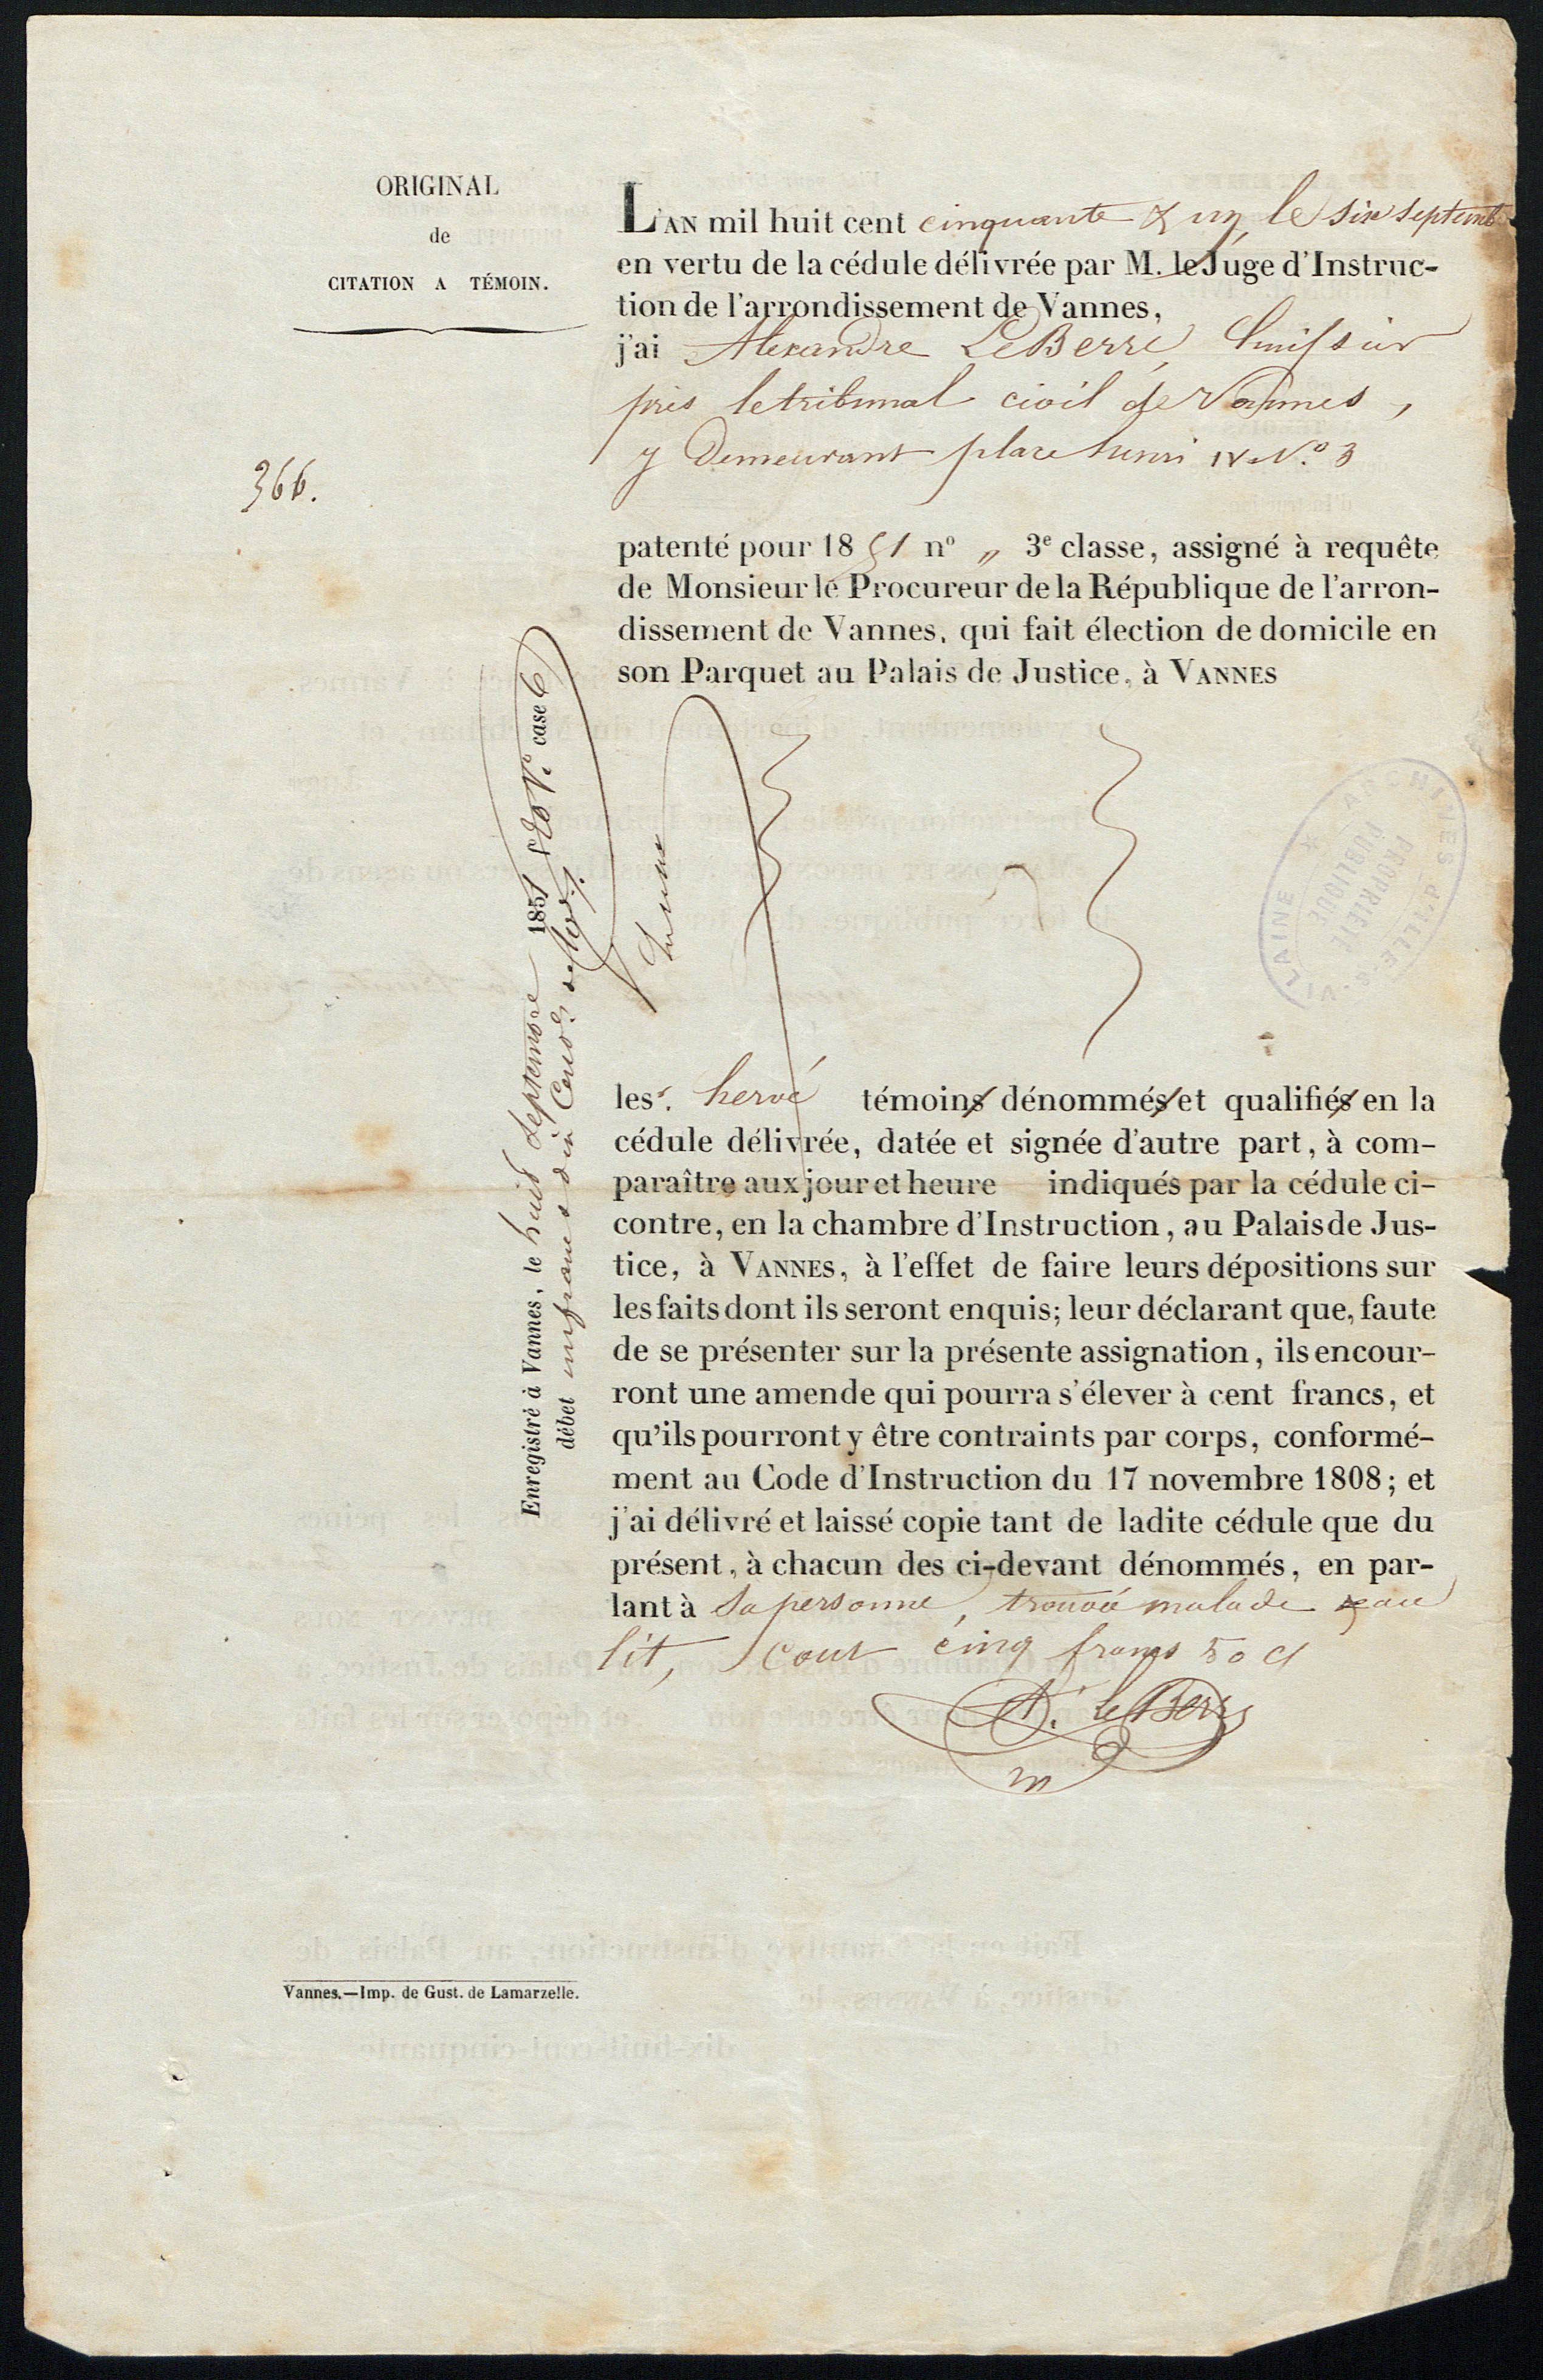 ORIGINAL
de
CITATION A TÉMOIN.
366.
L'AN mil huit cent cinquante & un, le six septemb
en vertu de la cédule délivrée par M. le Juge d'Instruc-
tion de l'arrondissement de Vannes,
j'ai Alexandre Le Berre, huissier
près le tribunal civil de Vannes,
y demeurant place henri IV N.° 3
patenté pour 1851 n° „ 3e classe, assigné à requête
de Monsieur le Procureur de la République de l'arron-
dissement de Vannes, qui fait élection de domicile en
son Parquet au Palais de Justice, à VANNES
les r. hervé témoins dénommés et qualifiés en la
cédule délivrée, datée et signée d'autre part, à com-
paraître aux jour et heure indiqués par la cédule ci-
contre, en la chambre d'Instruction, au Palais de Jus-
tice, à VANNES, à l'effet de faire leurs dépositions sur
les faits dont ils seront enquis; leur déclarant que, faute
de se présenter sur la présente assignation, ils encour-
ront une amende qui pourra s'élever à cent francs, et
qu'ils pourront y être contraints par corps, conformé-
ment au Code d'Instruction du 17 novembre 1808; et
j'ai délivré et laissé copie tant de ladite cédule que du
présent, à chacun des ci-devant dénommés, en par-
lant à sa personne, trouvé malade au
lit, Cout cinq francs 50 c
A. Le Berre
Enregistré à Vannes, le huit septembre 1851 V.° case 6
débet un franc dix cent.
ARCHIVES D'ILLE-&-VILAINE
PROPRIÉTÉ
PUBLIQUE
Vannes.—Imp. de Gust. de Lamarzelle.